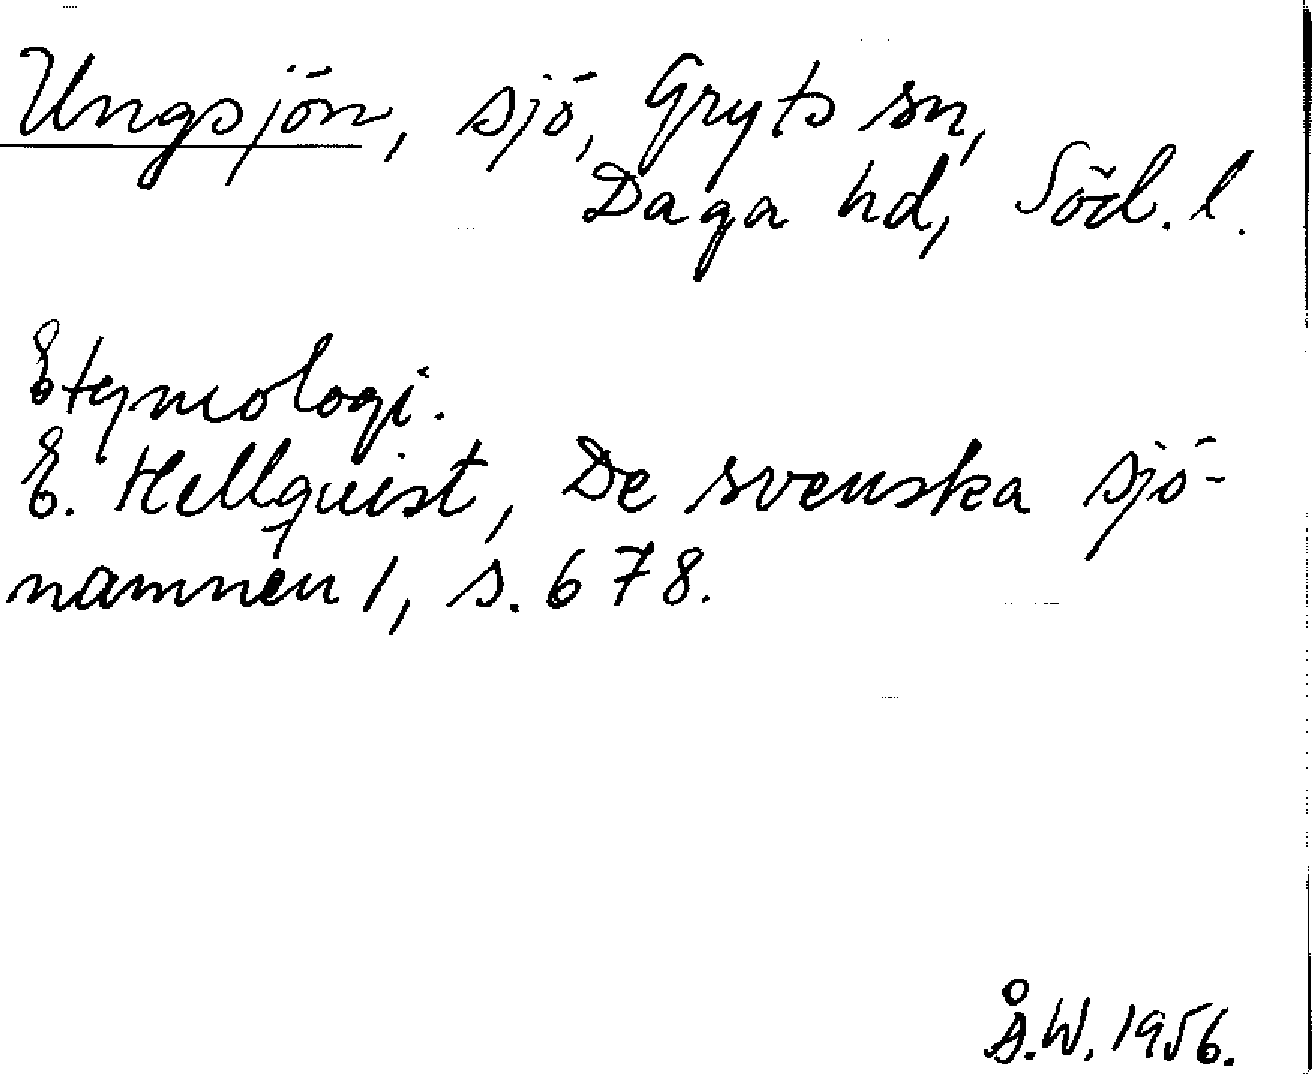 Ungsjön, sjö, Gryts sn,
Daga hd, Söd. l.
Etymologi.
E. Hellquist, De svenska sjö-
namnen 1, s. 678.
Å.W. 1956.